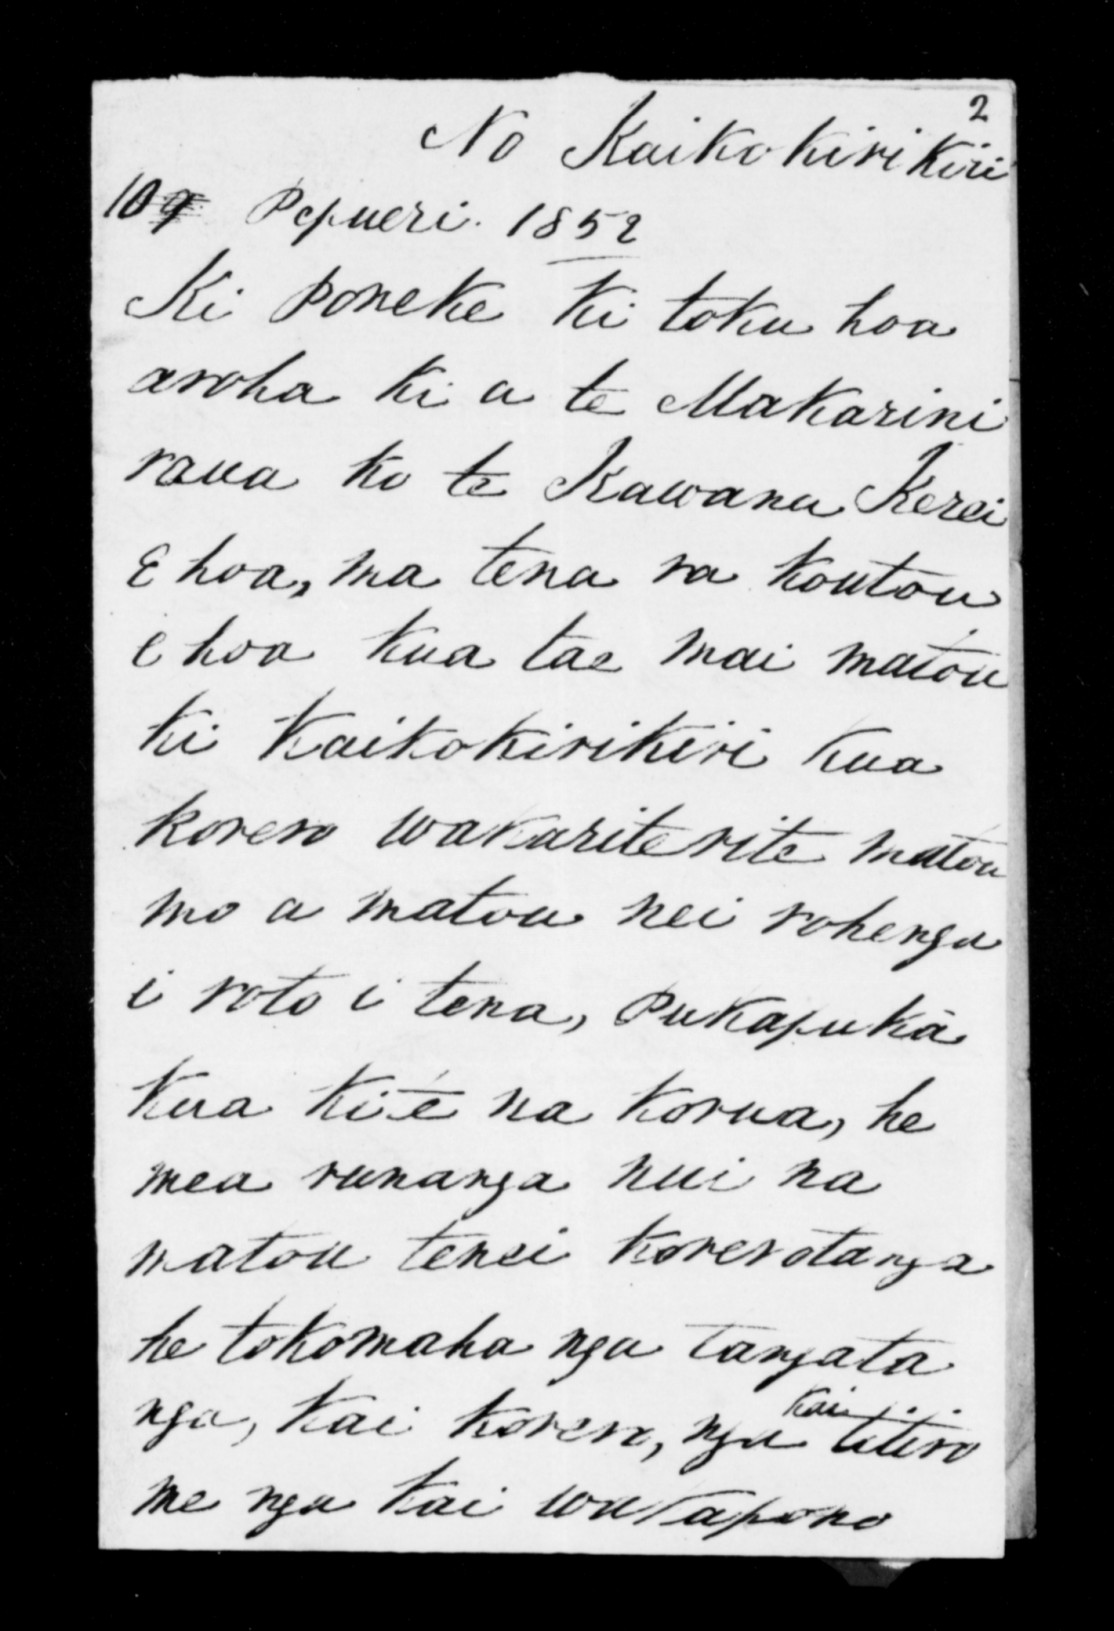 2
No Kaikokirikiri
10 Pepueri. 1852
Ki Poneke ki toku hoa
aroha ki a te Makarini
raua ko te Kawana Kerei
E hoa, ma tena ra koutou
E hoa kua tae mai matou
ki Kaikokirikiri kua
korero wakariterite matou
mo a matou nei rohenga
i roto i tena, Pukapuka
kua kite na korua, he
mea runanga nui na
matou tenei korerotanga
he tokomaha nga tangata
nga, kai korero, nga kai titiro
me nga kai wakapono